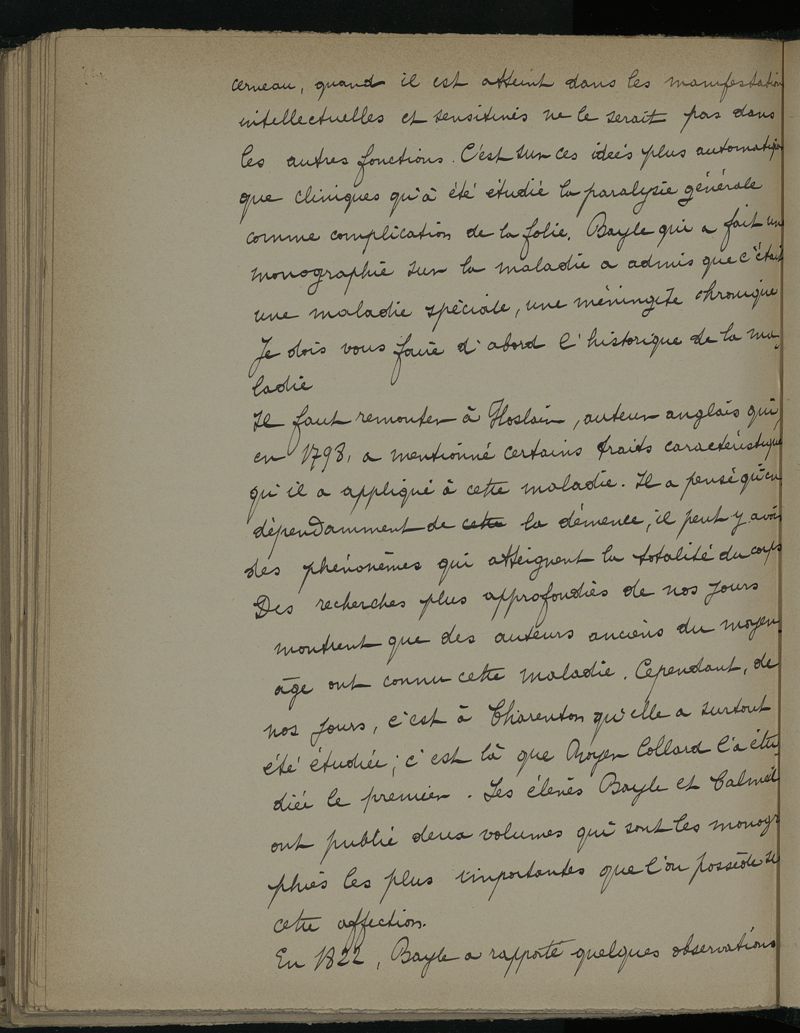 cerveau, quand il est atteint dans les manifestation
intellectuelles et sensitives ne le serait pas dans
les autres fonctions. C'est sur ces idées plus automatique
que cliniques qu'à été étudié la paralysie générale
comme complication de la folie. Bayle qui a fait une
monographie sur la maladie a admis que c'était
une maladie spéciale, une méningite chronique
Je dois vous faire d'abord l'historique de la ma-
ladie
Il faut remonter à Hoslain, auteur anglais qui,
en 1798, a mentionné certains traits caractéristique
qu'il a appliqué à cette maladie. Il a pensé qu'en
dépendamment de cette la démence, il peut y avoir
des phénonèmes qui atteignent la totalité du corps
Des recherches plus approfondies de nos jours
montrent que des auteurs anciens du moyen-
âge ont connu cette maladie. Cependant, de
nos jours, c'est à Charenton qu'elle a surtout
été étudiée; c'est là que Royer Collard l'a étu-
diée le premier. Les élèves Bayle et Calmeil
ont publié deux volumes qui sont les monogr
phies les plus importantes que l'on possède su
cette affection.
En 1822, Bayle a rapporté quelques observations